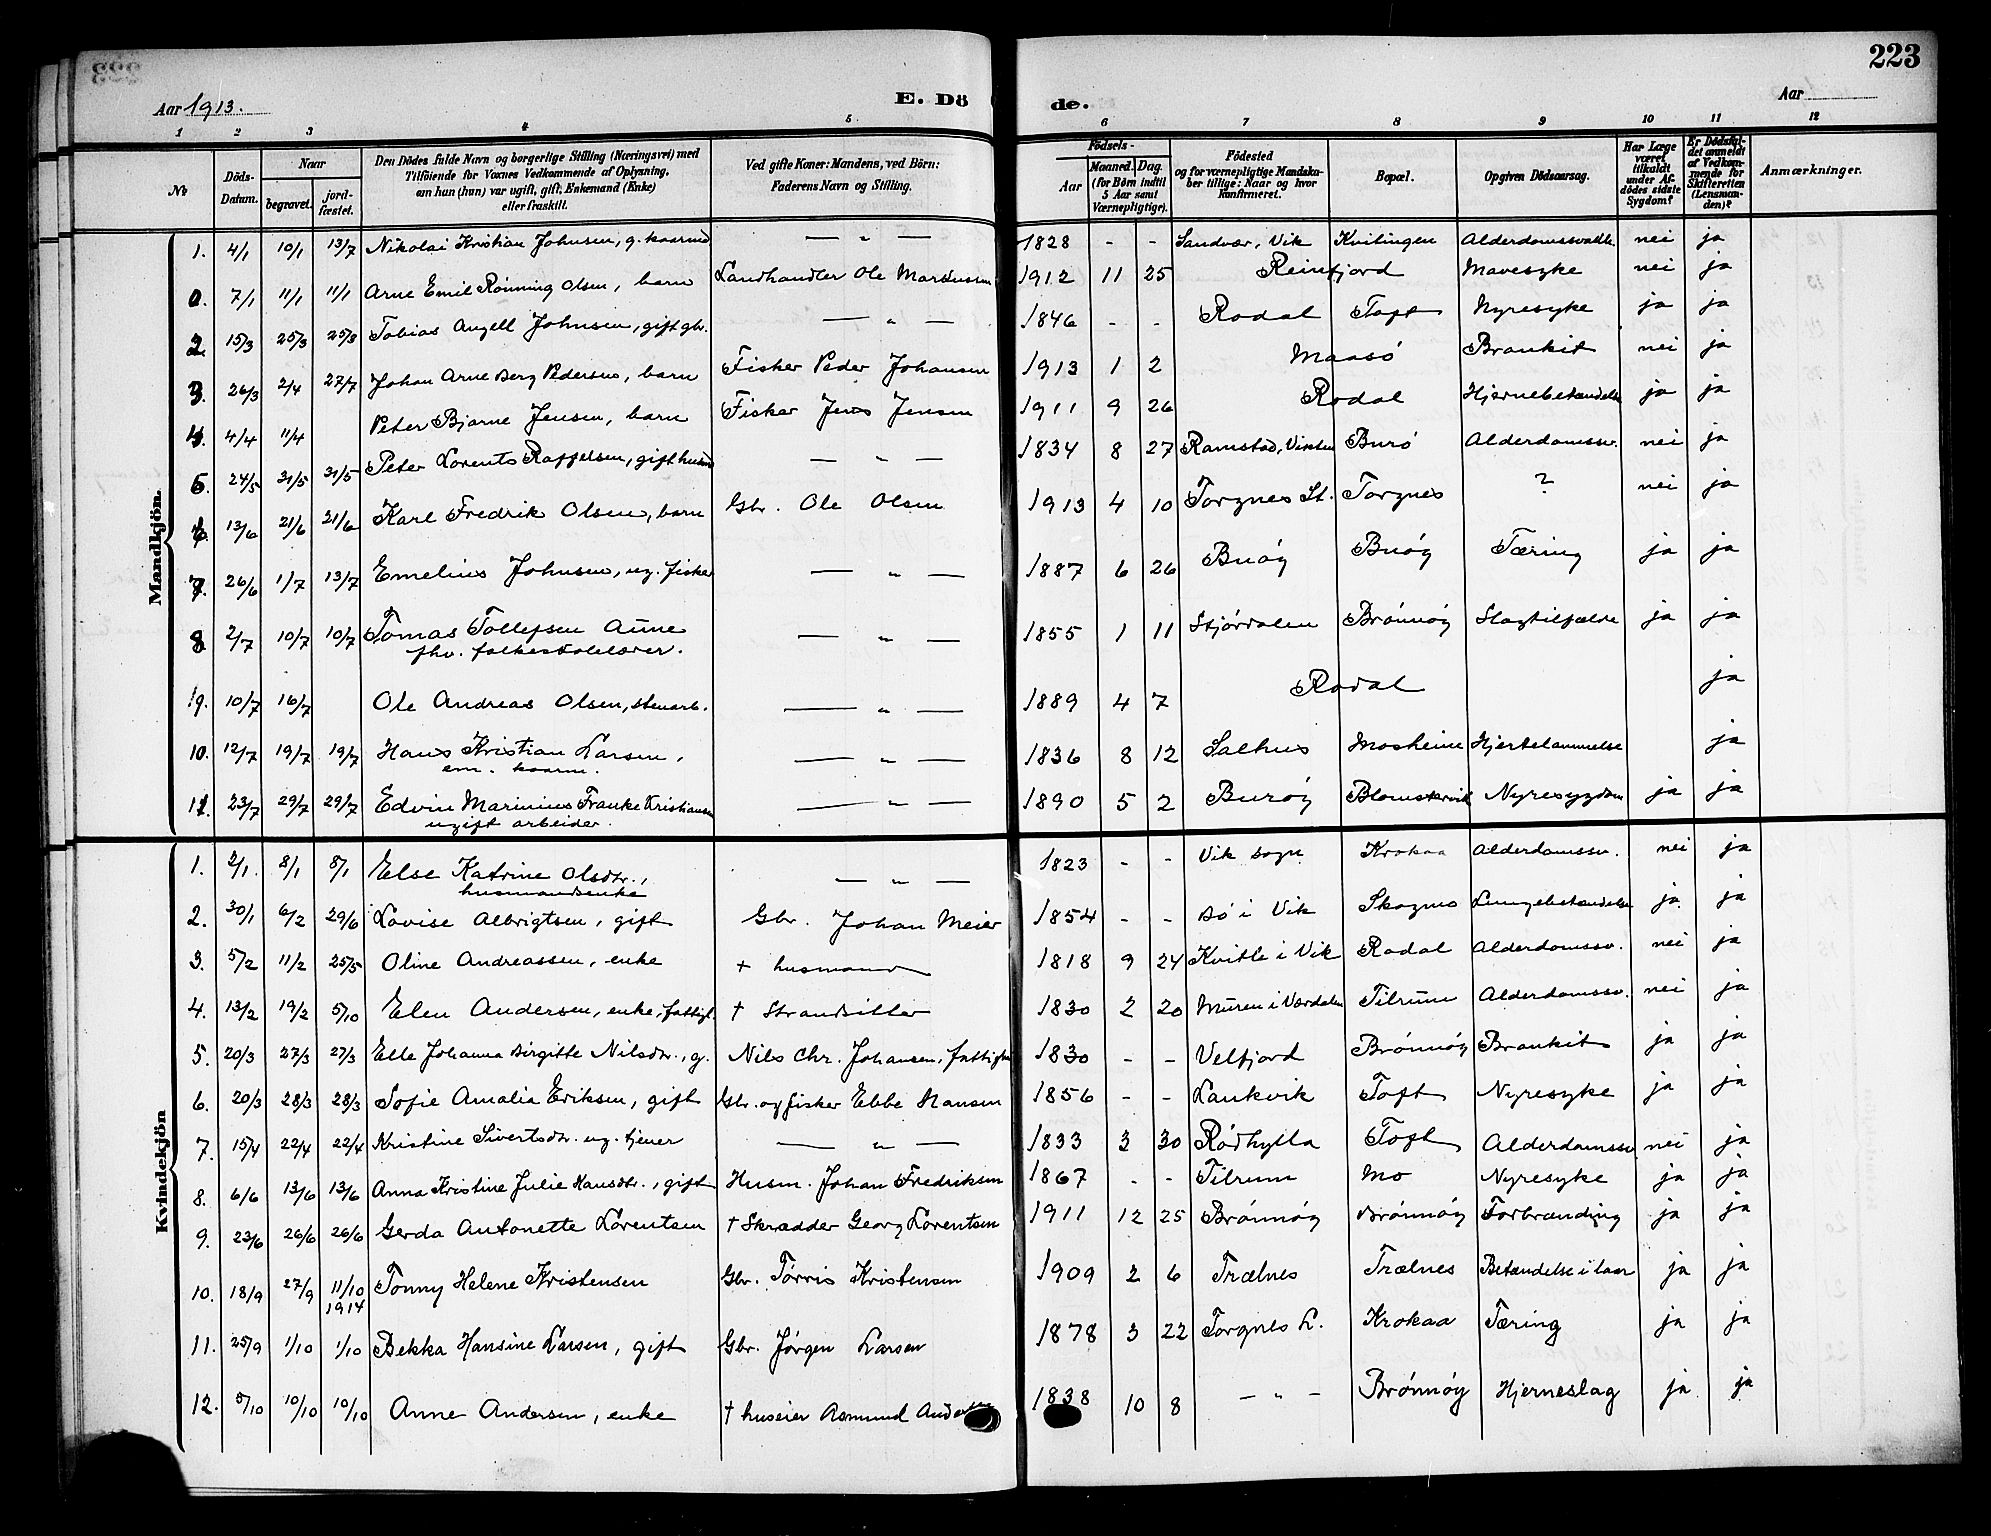 223
Aar 1913. E. Dö de. Aar
1 2 3 4 5 6 7 8 9 10 11 12
№ Döds-Datum. Naar begravet. jord-fæstet. Den Dödes fulde Navn og borgerlige Stilling (Næringsvei) med Tilföiende for Voxnes Vedkommende af Oplysning, om han (hun) var ugift, gift, Enkemand (Enke) eller fraskilt. Ved gifte Koner: Mandens, ved Börn: Faderens Navn og Stilling. Födsels- Aar Maaned. Dag. (for Börn indtil 5 Aar samt Værnepligtige). Födested og for værnepligtige Mandskaber tillige: Naar og hvor konfirmeret. Bopæl. Opgiven Dödsaarsag. Har Læge været tilkaldt under Afdödes sidste Sygdom? Er Dödsfaldet anmeldt af Vedkommende for Skifteretten (Lensmanden)? Anmærkninger.
Mandkjön.
1. 4/1 10/1 13/7 Nikolai Kristian Johnsen, g. kaarmd — „ — 1828 - - Sandvær, Vik Kvitingen nei ja
0. 7/1 11/1 11/1 Arne Emil Rønning Olsen, barn Landhandler Ole 1912 11 25 Reinfjord Mavesyke nei ja
2. 15/3 25/3 25/3 Tobias Angell Johnsen, gift gbr. — „ — 1846 - - Rodal Toft Nyresyke ja ja
3. 26/3 2/4 27/7 Johan Arne Berg Pedersen, barn Fisker Peder Johansen 1913 1 2 Maasö Bronkit nei ja
4. 4/4 11/4 Peter Bjarne Jensen, barn Fisker Jens Jensen 1911 9 26 Rodal Hjernebetændelse ja ja
5. 24/5 31/5 31/5 Peter Lorents Raffelsen, gift husmd — „ — 1834 8 27 Ramstad, Burö Alderdomssv. nei ja
6. 13/6 21/6 21/6 Karl Fredrik Olsen, barn Gbr. Ole Olsen 1913 4 10 Torgnes St. Torgnes ? nei ja
7. 26/6 1/7 13/7 Emelius Johnsen, ug. fisker — „ — 1887 6 26 Buöy Buöy Tæring ja ja
8. 2/7 10/7 10/7 Tomas Tollefsen Aune — „ — 1855 1 11 Stjördalen Brönnöy Slagtilfælde ja ja
fhv. folkeskolelærer.
9. 10/7 16/7 Ole Andreas Olsen, stenarb. — „ — 1889 4 7 Rodal ja
10. 12/7 19/7 19/7 Hans Kristian Larsen, — „ — 1836 8 12 Salhus Mosheim Hjertelammelse ja
em. kaarm.
11. 23/7 29/7 29/7 Edvin Marinius Franke Kristiansen — „ — 1890 5 2 Buröy Blomstervik Nyresygdom ja ja
ugift arbeider.
Kvindekjön
1. 2/1. 8/1 8/1 Else Katrine Olsdtr., — „ — 1823 - - Vik sogn Krokaa Alderdomssv. nei ja
husmandsenke
2. 30/1 6/2 29/6 Lovise Albrigtsen, gift Gbr. Johan Meier 1854 - - Sö i Vik Skogmo Lungebetændelse ja ja
3. 5/2 11/2 25/5 Oline Andreassen, enke + husmand 1818 9 24 Kvitle i Vik Rodal Alderdomssv. nei ja
4. 13/2 19/2 5/10 Elen Andersen, enke, fattigl. † Strandsitter 1830 2 20 Muren i Værdalen Tilrum Alderdomssv. nei ja
5. 20/3 27/3 27/3 Elle Johanna Birgitte Nilsdtr., g. Nils Chr. Johansen, 1830 - - Velfjord Brönnöy Bronkit ja ja
6. 20/3 28/3 28/3 Sofie Amalia Eriksen, gift Gbr. og fisker Ebbe Hansen 1856 - - Lankvik Toft Nyresyke ja ja
7. 15/4 22/4 22/4 Kristine Sivertsdtr. ug. tjener — „ — 1833 3 30 Rödhylla Toft Alderdomssv nei ja
8. 6/6 13/6 13/6 Anna Kristine Julie Hansdtr., gift Husm. Johan Fredriksen 1867 - - Tilrum Mo Nyresyke ja ja
9. 23/6 26/6 26/6 Gerda Antonette Lorentsen † Skrædder Georg Lorentsen 1911 12 25 Brönnöy Brönnöy Forbrænding ja ja
10. 18/9 27/9 11/10 1914 Tonny Helene Kristensen Gbr. Törris Kristensen 1909 2 6 Trælnes Trælnes Betændelse i laar ja ja
11. 25/9 1/10 1/10 Bekka Hansine Larsen, gift Gbr. Jörgen Larsen 1878 3 22 Torgnes L. Krokaa Tæring ja ja
12. 5/10 10/10 10/10 Anne Andersen, enke † huseier Asmund 1838 10 8 — „ — Brönnöy Hjerneslag ja ja